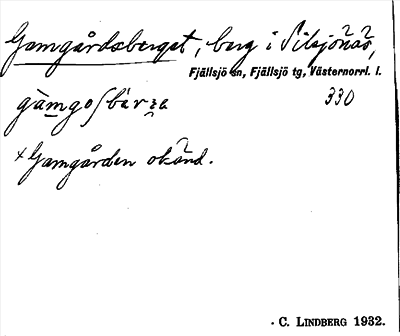 Gamgårdsberget, berg i Silsjönäs,
Fjällsjö sn, Fjällsjö tg, Västernorrl. l.
330
+ Gamgården okänd.
· C. LINDBERG 1932.